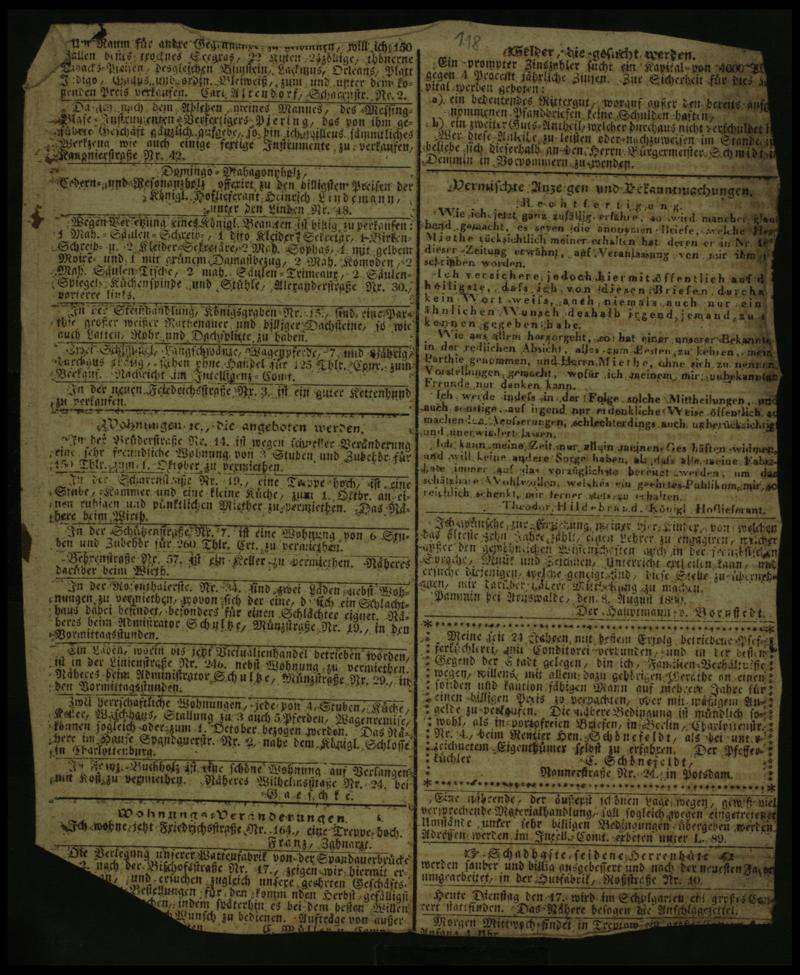 118
Um Raum für andre Gegenstände zu gewinnen, will ich 150
Ballen feines trocknes Seegras, 22 Kisten 2zöllige, thönerne
Tabacks-Pfeifen, desgleichen Bimstein, Lackmus, Orleans, Platt
Indigo, Gallus und ordin. Bleiweiß, zum und unter dem ko-
stenden Preis verkaufen. Carl Altendorf, Scharrnstr. Nr. 2.
Da ich nach dem Ableben meines Mannes, des Messing-
Blase-Instrumenten-Verfertigers Piering, das von ihm ge-
führte Geschäft gänzlich aufgebe, so bin ich willens sämmtliches
Werkzeug wie auch einige fertige Instrumente zu verkaufen,
Kanonierstraße Nr. 42.
Domingo-Mahagonyholz,
Cedern- und Resonanzholz offerirt zu den billigsten Preisen der
Königl. Hoflieferant Heinrich Lindemann,
unter den Linden Nr. 48.
Wegen Versetzung eines Königl. Beamten ist billig zu verkaufen:
1 Mah. Säulen-Schreib-, 1 dito Kleider-Secretär, 1 Birken-
Schreib- u. 2 Kleider-Secretäre, 2 Mah. Sophas, 1 mit gelbem
Moire- und 1 mit grünem Damastbezug, 2 Mah. Komoden, 2
Mah. Säulen-Tische, 2 mah. Säulen-Trimeaux, 2 Säulen-
Spiegel, Küchenspinde und Stühle, Alexanderstraße Nr. 30.
parterre links.
In der Steinhandlung, Königsgraben Nr. 15, sind eine Par-
thie großer weißer Rathenauer und billiger Dachsteine, so wie
auch Latten, Rohr und Dachsplitte zu haben.
Zwei Schimmel, Langschwänze, Wagenpferde, 7 und 8jährig,
durchaus fromm, stehen ohne Handel für 125 Thlr. Cour. zum
Verkauf. Nachricht im Intelligenz-Comt.
In der neuen Friedrichsstraße Nr. 3. ist ein guter Kettenhund
zu verkaufen.
Wohnungen ꝛc., die angeboten werden.
In der Brüderstraße Nr. 14. ist wegen schneller Veränderung
eine sehr freundliche Wohnung von 3 Stuben und Zubehör für
150 Thlr. zum 1. October zu vermiethen.
In der Scharrnstraße Nr. 19., eine Treppe hoch, ist eine
Stube, Kammer und eine kleine Küche, zum 1. Octbr. an ei-
nen ruhigen und pünktlichen Miether zu vermiethen. Das Nä-
here beim Wirth.
In der Schützenstraße Nr. 7. ist eine Wohnung von 6 Stu-
ben und Zubehör für 260 Thlr. Crt. zu vermiethen.
Behrenstraße Nr. 57. ist ein Keller zu vermiethen. Näheres
darüber beim Wirth.
In der Rosenthalerstr. Nr. 34. sind zwei Läden nebst Woh-
nungen zu vermiethen, wovon sich der eine, da sich ein Schlacht-
haus dabei befindet, besonders für einen Schlächter eignet. Nä-
heres beim Administrator Schultze, Münzstraße Nr. 19., in den
Vormittagsstunden.
Ein Laden, worin bis jetzt Victualienhandel betrieben worden,
ist in der Linienstraße Nr. 246. nebst Wohnung zu vermiethen.
Näheres beim Administrator Schultze, Münzstraße Nr. 29., in
den Vormittagsstunden.
Zwei herrschaftliche Wohnungen, jede von 4 Stuben, Küche,
Keller, Waschhaus, Stallung zu 3 auch 5 Pferden, Wagenremise,
können sogleich oder zum 1. October bezogen werden. Das Nä-
here im Hause Spandauerstr. Nr. 2. nahe dem Königl. Schlosse
in Charlottenburg.
In Franz. Buchholz ist eine schöne Wohnung auf Verlangen
mit Kost zu vermiethen. Näheres Wilhelmsstraße Nr. 24. bei
Gaeschke.
Wohnungs-Veränderungen.
Ich wohne jetzt Friedrichsstraße Nr. 164., eine Treppe hoch.
Franz, Zahnarzt.
Die Verlegung unserer Wattenfabrik von der Spandauerbrücke
2. nach der Bischofsstraße Nr. 17., zeigen wir hiermit er-
an, und ersuchen zugleich unsere geehrten Geschäfts-
Bestellungen für den kommenden Herbst gefälligst
chen, indem späterhin es bei dem besten Willen
Wunsch zu bedienen. Aufträge von außer-
Gelder, die gesucht werden.
Ein prompter Zinszahler sucht ein Kapital von 4000
gegen 4 Procent jährliche Zinsen. Zur Sicherheit für dies
pital werden geboten:
a) ein bedeutendes Rittergut, worauf außer den bereits auf
nommenen Pfandbriefen keine Schulden haften,
b) ein zweiter Guts-Antheil, welcher durchaus nicht verschuldet
Wer diese Anleihe zu leisten oder nachzuweisen im Stande
beliebe sich dieserhalb an den Herrn Bürgermeister Schmidt
Demmin in Vorpommern zu wenden.
Vermischte Anzeigen und Bekanntmachungen.
Rechtfertigung.
Wie ich jetzt ganz zufällig erfahre, so wird mancher glau
bend gemacht, es seyen die anonymen Briefe, welche Herr
Miethe rücksichtlich meiner erhalten hat deren er in Nr.
dieser Zeitung erwähnt, auf Veranlassung von mir ihm
schrieben worden.
Ich versichere jedoch hiermit öffentlich auf d
heiligste, dafs ich von diesen Briefen durcha
kein Wort weifs, auch niemals auch nur ein
ähnlichen Wunsch deshalb irgend jemand zu
kennen gegeben habe.
Wie aus allem hervorgeht, so hat einer unserer Bekannten
in der redlichen Absicht, alles zum Besten zu kehren, mein
Parthie genommen, und Herrn Miethe, ohne sich zu nennen,
Vorstellungen gemacht, wofür ich meinem mir unbekannten
Freunde nur danken kann.
Ich werde indefs in der Folge solche Mittheilungen, und
auch sonstige, auf irgend nur erdenkliche Weise öffentlich zu
machende Aeufserungen, schlechterdings auch unberücksichtigt
und unerwiedert lassen.
Ich kann meine Zeit nur allein meinen Geschäften widmen,
und will keine andere Sorge haben, als dafs alle meine Fabri-
kate immer auf das vorzüglichste bereitet werden, um das
schätzbare Wohlwollen, welches ein geehrtes Publikum mir so
reichlich schenkt, mir ferner stets zu erhalten.
Theodor Hildebrand, Königl. Hoflieferant.
Ich wünsche, zur Erziehung meiner vier Kinder, von welchen
das älteste zehn Jahre zählt, einen Lehrer zu engagiren, welcher
außer den gewöhnlichen Wissenschaften auch in der französischen
Sprache, Musik und Zeichnen, Unterricht ertheilen kann, und
ersuche diejenigen, welche geneigt sind, diese Stelle zu überneh-
men, mir darüber nähere Mittheilung zu machen.
Pammin bei Arnswalde, den 8. August 1830.
Der Hauptmann v. Bornstedt.
Meine seit 24 Jahren mit bestem Erfolg betriebene Pfef-
ferküchlerei, mit Conditorei verbunden, und in der besten
Gegend der Stadt gelegen, bin ich, Familien-Verhältnisse
wegen, willens, mit allem dazu gehörigen Geräthe an einen
soliden und kautionsfähigen Mann auf mehrere Jahre für
einen billigen Preis zu verpachten, oder mit mäßigem An-
gelde zu verkaufen. Die nähere Bedingung ist mündlich so-
wohl, als in portofreien Briefen, in Berlin, Charlottenstr.
Nr. 4., beim Rentier Hrn. Schönefeldt, als bei unter-
zeichnetem Eigenthümer selbst zu erfahren. Der Pfeffer-
küchler C. Schönefeldt,
Nauenerstraße Nr. 24. in Potsdam.
Eine nährende, der äußerst schönen Lage wegen, gewiß viel
versprechende Materialhandlung, soll sogleich wegen eingetretener
Umstände unter sehr billigen Bedingungen übergeben werden.
Adressen werden im Intell.-Comt. erbeten unter L. 89.
☞ Schadhafte seidene Herrenhüte ☜
werden sauber und billig ausgebessert und nach der neuesten Façon
umgearbeitet, in der Hutfabrik, Roßstraße Nr. 10.
Heute Dienstag den 17. wird im Schulgarten ein großes Con-
cert stattfinden. Das Nähere besagen die Anschlagezettel.
Morgen Mittwoch findet in Treptow ein großes